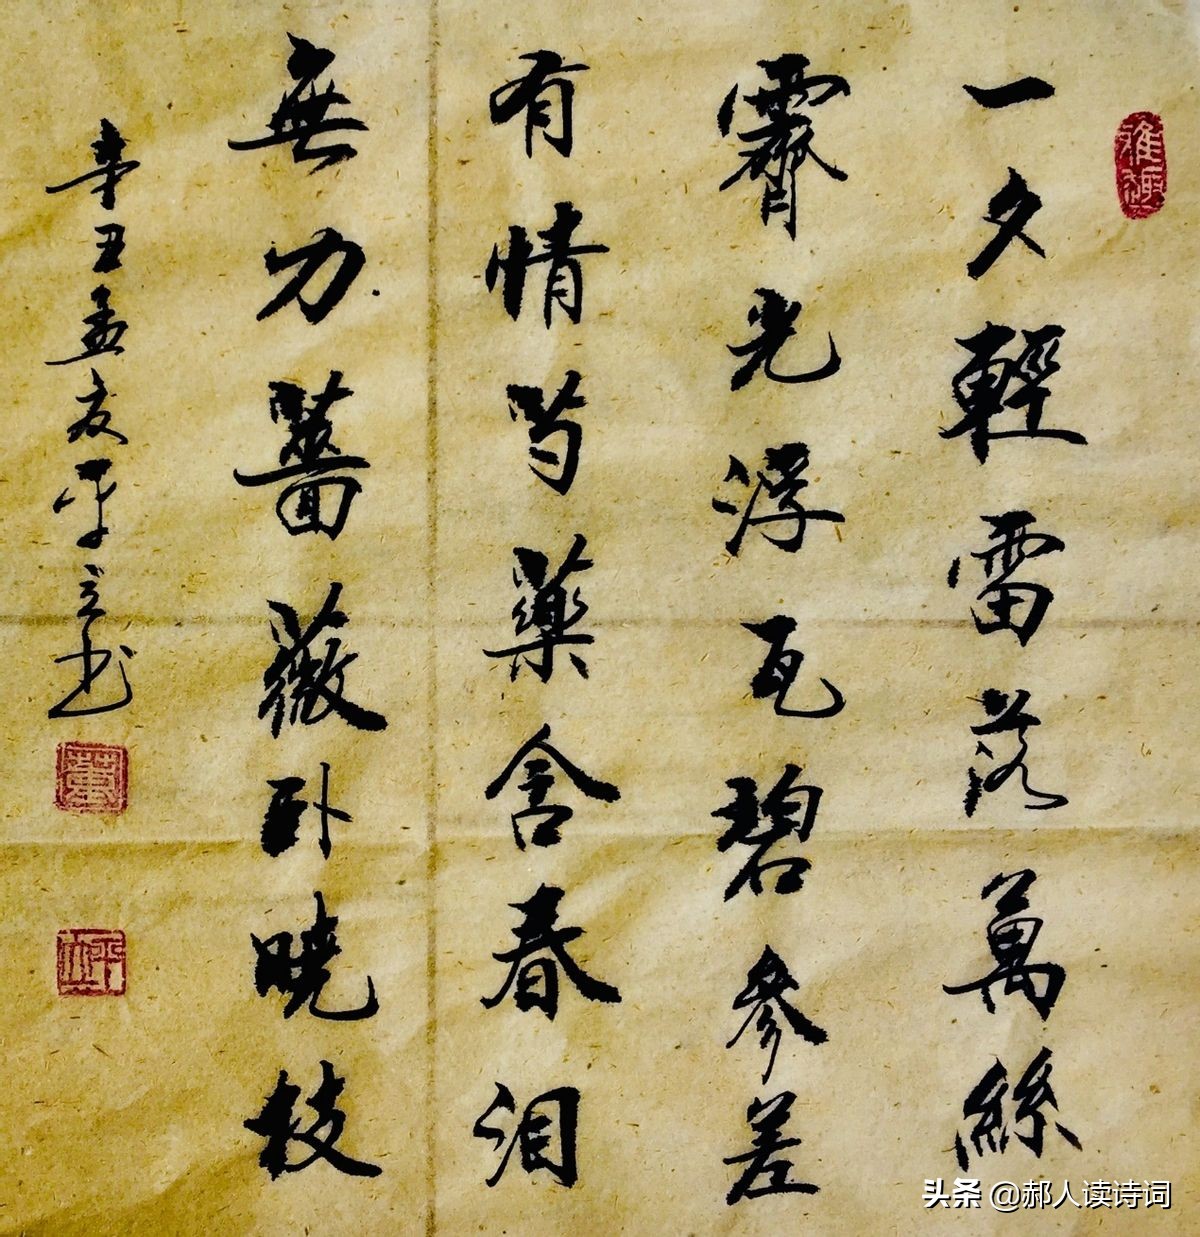 一夕輕雷落萬絲
霽光浮瓦碧參差
有情芍藥含春泪
無力薔薇卧曉枝
辛丑孟友平立书
雅趣
头条 @郝人读诗词